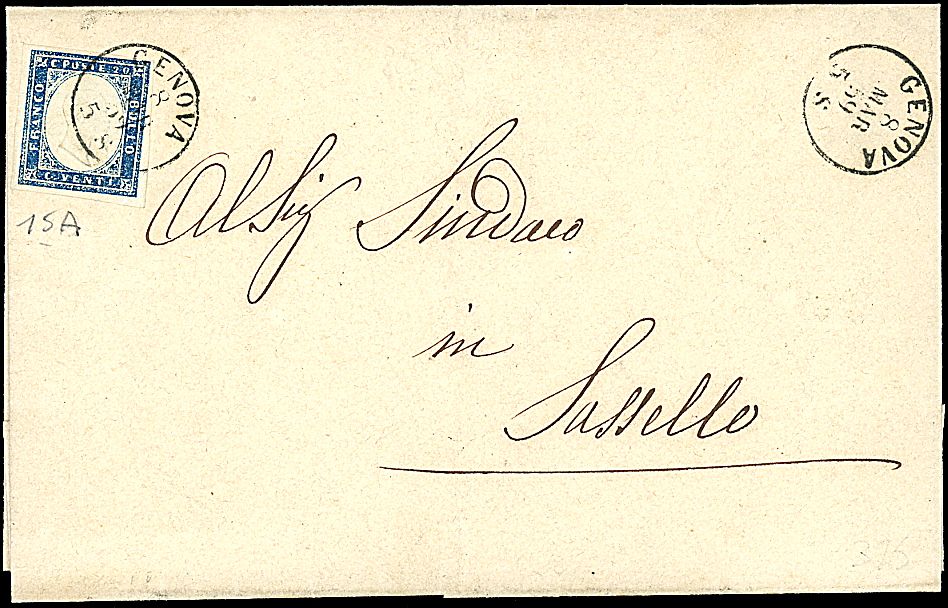 C. POSTE 20
FRANCO
BOLLO
C. VENTI
GENOVA
8
59
5 S
GENOVA
8
MAR
59
5 S
15A
Al Sig Sindaco
in
Sassello